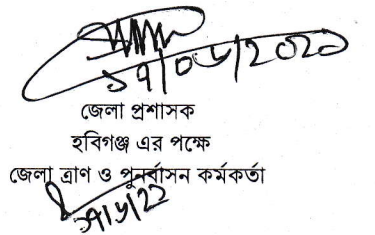 ১৭/০৮/২০২১
জেলা প্রশাসক
হবিগঞ্জ এর পক্ষে
জেলা ত্রাণ ও পুনর্বাসন কর্মকর্তা